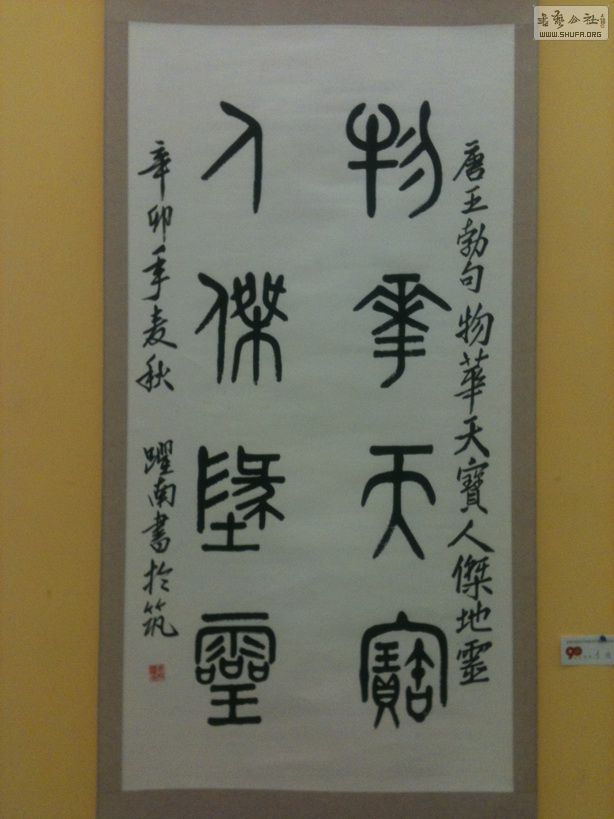 唐王勃句 物華天寶人傑地靈
物華天寶
人傑墬靈
辛卯年麦秋 躍南書於筑
書藝公社
WWW.SHUFA.ORG
90